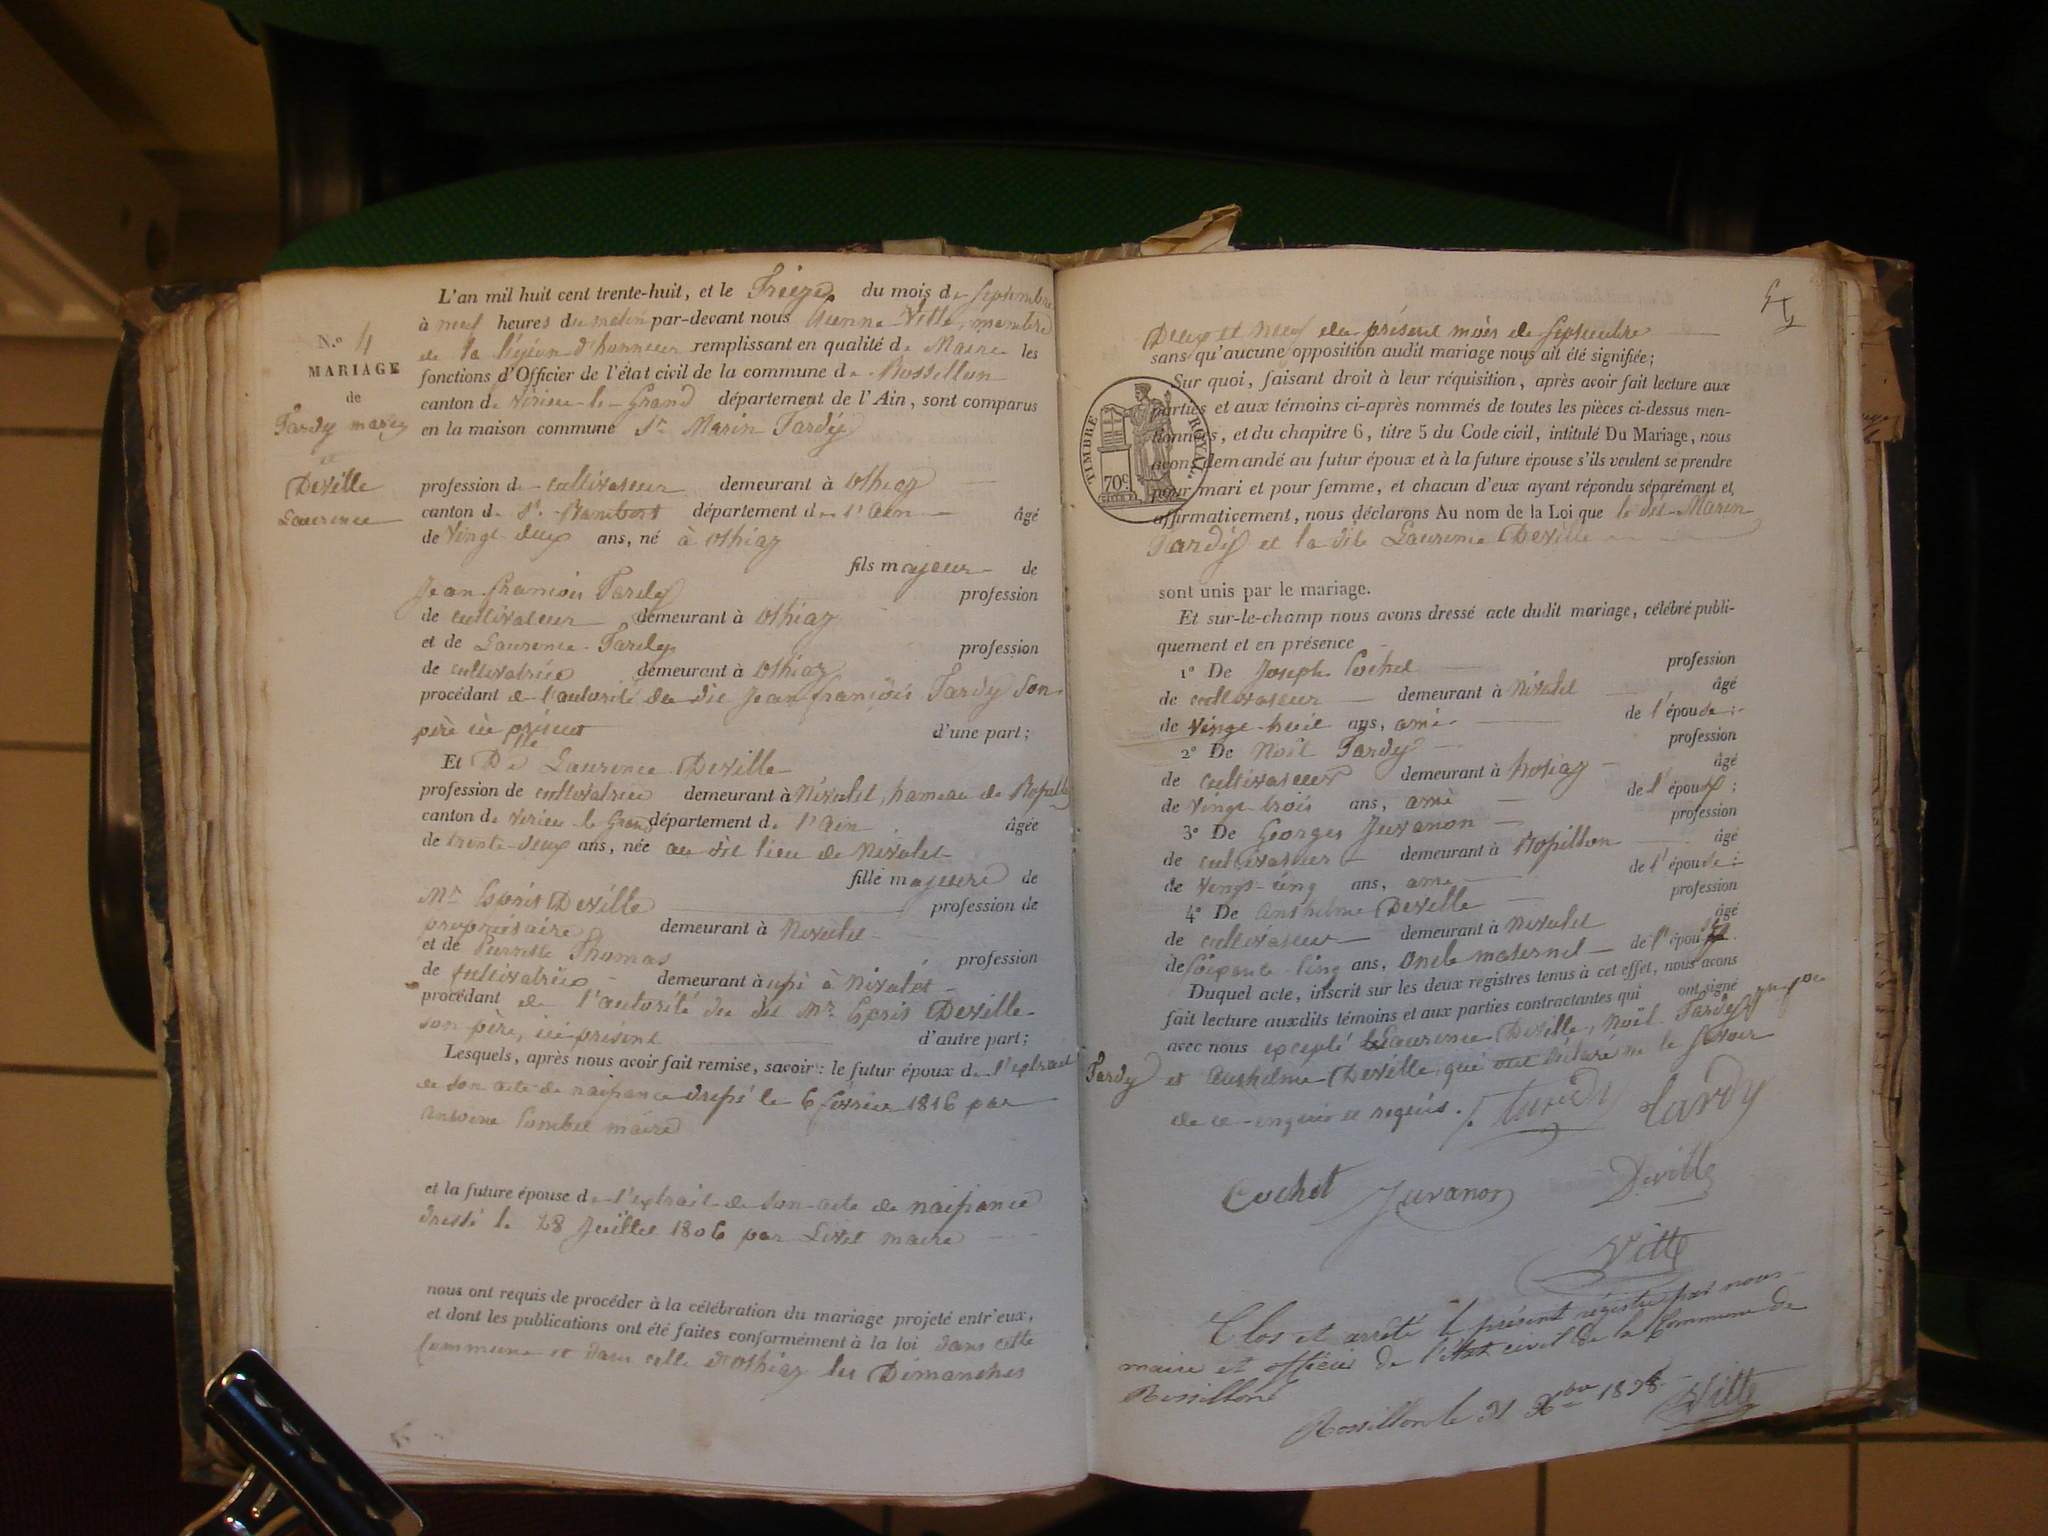 N.º 4
MARIAGE
de
Tardy marin
et
Deville
Laurence
L'an mil huit cent trente-huit, et le Treize du mois de septembre
à neuf heures du matin par-devant nous Vitte, membre
de la légion d'honneur remplissant en qualité de Maire les
fonctions d'Officier de l'état civil de la commune de Rossillon
canton de Virieu-le-Grand département de l'Ain, sont comparus
en la maison commune Sr. Marin Tardy
profession de cultivateur demeurant à Othiaz
canton de St. Rambert département de l'ain âgé
de Vingt deux ans, né à Othiaz
fils majeur de
Jean françois Tardy profession
de cultivateur demeurant à Othiaz
et de Laurence Tardy profession
de cultivatrice demeurant à Othiaz
procédant de l'autorité du dit Jean françois Tardy son
père ici présent d'une part;
Et Dlle Laurence Deville
profession de cultivatrice demeurant à Nivolet, hameau de
canton de Virieu le Grand département de l'Ain âgée
de trente-deux ans, née au dit lieu de Nivolet
fille majeure de
Mr. Esprit Deville profession de
propriétaire demeurant à Nivolet
et de Pierrette Thomas profession
de Cultivatrice demeurant à aussi à Nivolet
procédant de l'autorité du dit Mr. Esprit Deville
son père, ici présent d'autre part;
Lesquels, après nous avoir fait remise, savoir: le futur époux de l'extrait
de son acte de naissance dressé le 6 février 1816 par
antoine maire
et la future épouse de l'extrait de son acte de naissance
dressé le 28 Juillet 1806 par Livet maire
nous ont requis de procéder à la célébration du mariage projeté entr'eux,
et dont les publications ont été faites conformément à la loi dans cette
Commune et dans celle d'Othiaz les Dimanches
Deux et Neuf du présent mois de Septembre
sans qu'aucune opposition audit mariage nous ait été signifiée;
Sur quoi, faisant droit à leur réquisition, après avoir fait lecture aux
parties et aux témoins ci-après nommés de toutes les pièces ci-dessus men-
tionnées, et du chapitre 6, titre 5 du Code civil, intitulé Du Mariage, nous
avons demandé au futur époux et à la future épouse s'ils veulent se prendre
pour mari et pour femme, et chacun d'eux ayant répondu séparément et
affirmativement, nous déclarons Au nom de la Loi que le dit Marin
Tardy et la dite Laurence Deville
TIMBRE ROYAL
70c
sont unis par le mariage.
Et sur-le-champ nous avons dressé acte dudit mariage, célébré publi-
quement et en présence
1º De Joseph Cochet profession
de cultivateur demeurant à Nivolet âgé
de Vingt-huit ans, ami de l'épouse;
2º De Noël Tardy profession
de cultivateur demeurant à âgé
de Vingt trois ans, ami de l'époux;
3º De Georges Juvanon profession
de cultivateur demeurant à Rossillon âgé
de Vingt-cinq ans, ami de l'épouse;
4º De anthelme Deville profession
de cultivateur demeurant à Nivolet âgé
de Soixante-Cinq ans, Oncle maternel de l'épouse.
Duquel acte, inscrit sur les deux registres tenus à cet effet, nous avons
fait lecture auxdits témoins et aux parties contractantes qui ont signé
avec nous excepté Laurence Deville, Noël Tardy
Tardy et Anthelme Deville, qui ont déclaré ne le savoir
de ce enquis et requis. Tardy Tardy
Cochet Juvanon Deville
Vitte
Clos et arrêté le présent régistre par nous
maire et officier de l'état civil de la Commune de
Rossillon
Rossillon le 31 Xbre 1838 Vitte